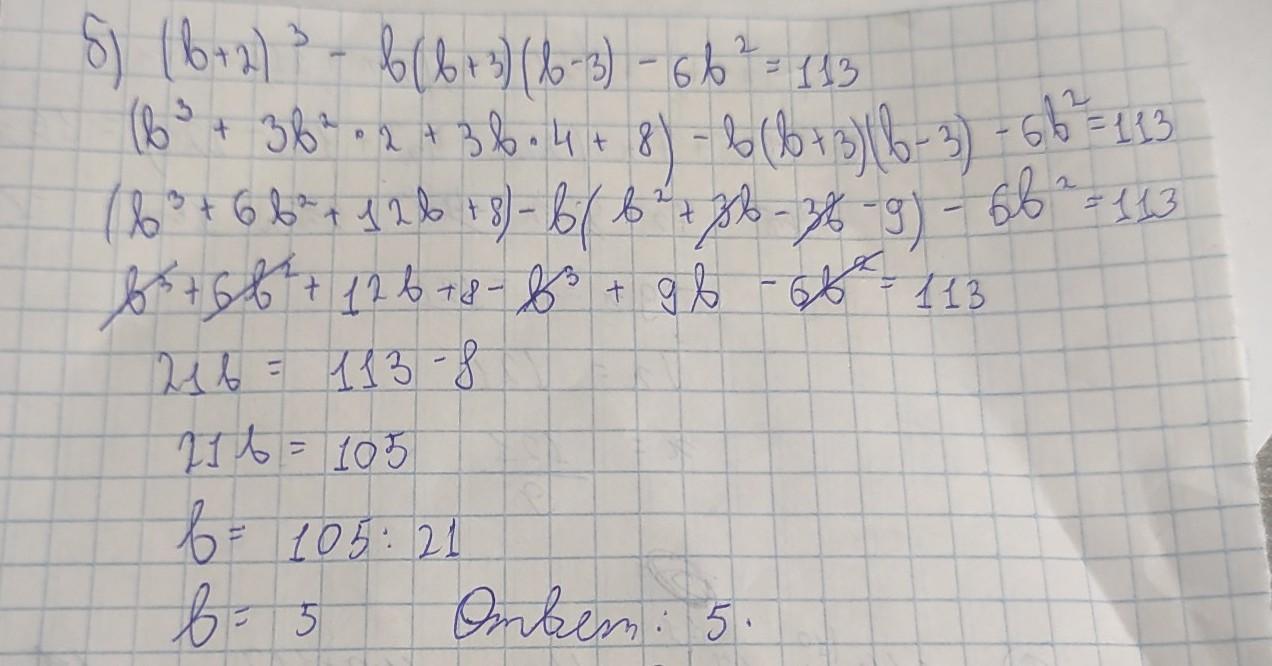 б) (b+2)³ - b(b+3)(b-3) - 6b² = 113
(b³ + 3b² · 2 + 3b · 4 + 8) - b(b+3)(b-3) - 6b² = 113
(b³ + 6b² + 12b + 8) - b(b² + 3b - 3b - 9) - 6b² = 113
b³ + 6b² + 12b + 8 - b³ + 9b - 6b² = 113
21b = 113 - 8
21b = 105
b = 105 : 21
b = 5 Ответ: 5.